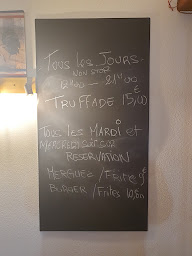 TOUS LES JOURS.
NON STOP
12H00 — 21H00
TRUFFADE 15,00 €
TOUS LES MARDI et
MERCREDI SOIR SUR
RESERVATION
MERGUEZ / FRITES
BURGER / Frites